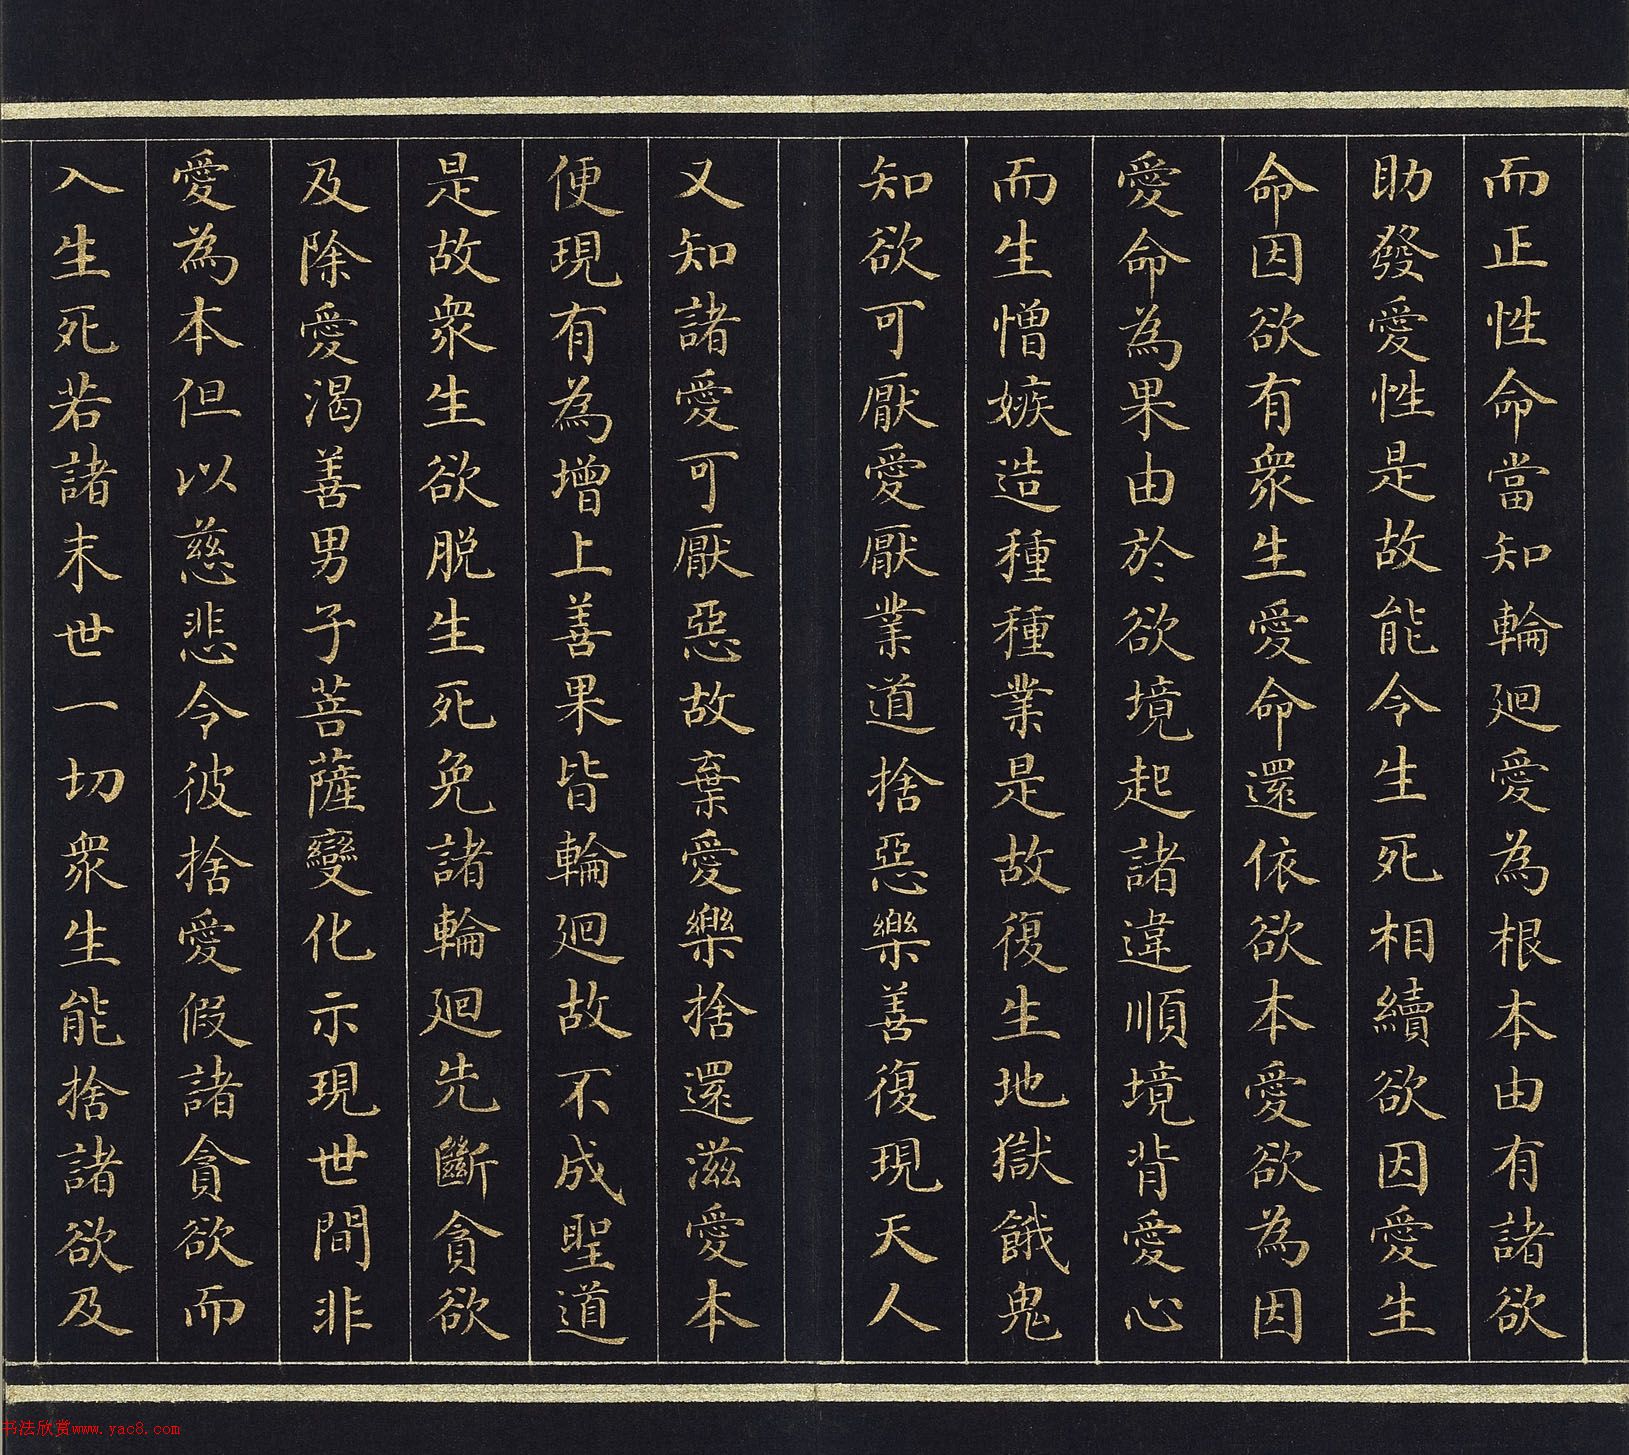 而正性命當知輪廻愛為根本由有諸欲
助發愛性是故能令生死相續欲因愛生
命因欲有衆生愛命還依欲本愛欲為因
愛命為果由於欲境起諸違順境背愛心
而生憎嫉造種種業是故復生地獄餓鬼
知欲可厭愛厭業道捨惡樂善復現天人
又知諸愛可厭惡故棄愛樂捨還滋愛本
便現有為增上善果皆輪廻故不成聖道
是故衆生欲脫生死免諸輪廻先斷貪欲
及除愛渴善男子菩薩變化示現世間非
愛為本但以慈悲令彼捨愛假諸貪欲而
入生死若諸末世一切衆生能捨諸欲及
书法欣赏www.yac8.com